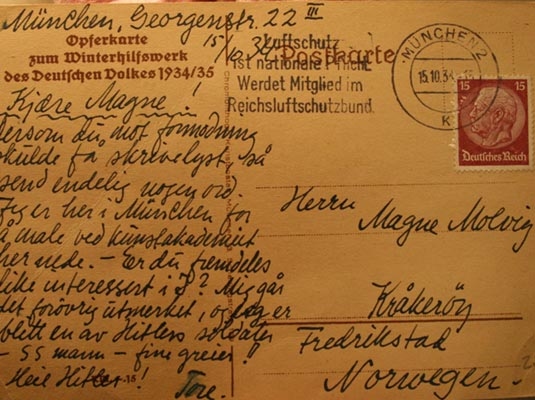 München, Georgenstr. 22 III
15/10 34
Opferkarte
zum Winterhilfswerk
des Deutschen Volkes 1934/35
Kjære Magne!
dersom du mot formodning
skulde få skrivelyst, så
send endelig nogen ord.
Jeg er her i München for
å male ved kunstakademiet
her nede. – Er du fremdeles
like interessert i J? Mig går
det forøvrig utmerket, og jeg er
blitt en av Hitlers soldater
– SS mann – fine greier!!
Heil Hitler!
Tore.
15
Postkarte
Luftschutz
ist nationale Pflicht
Werdet Mitglied im
Reichsluftschutzbund.
MÜNCHEN 2
15.10.34
K
15 15
Deutsches Reich
Herrn
Magne Molvig
Kråkerøy
Fredrikstad
Norwegen.